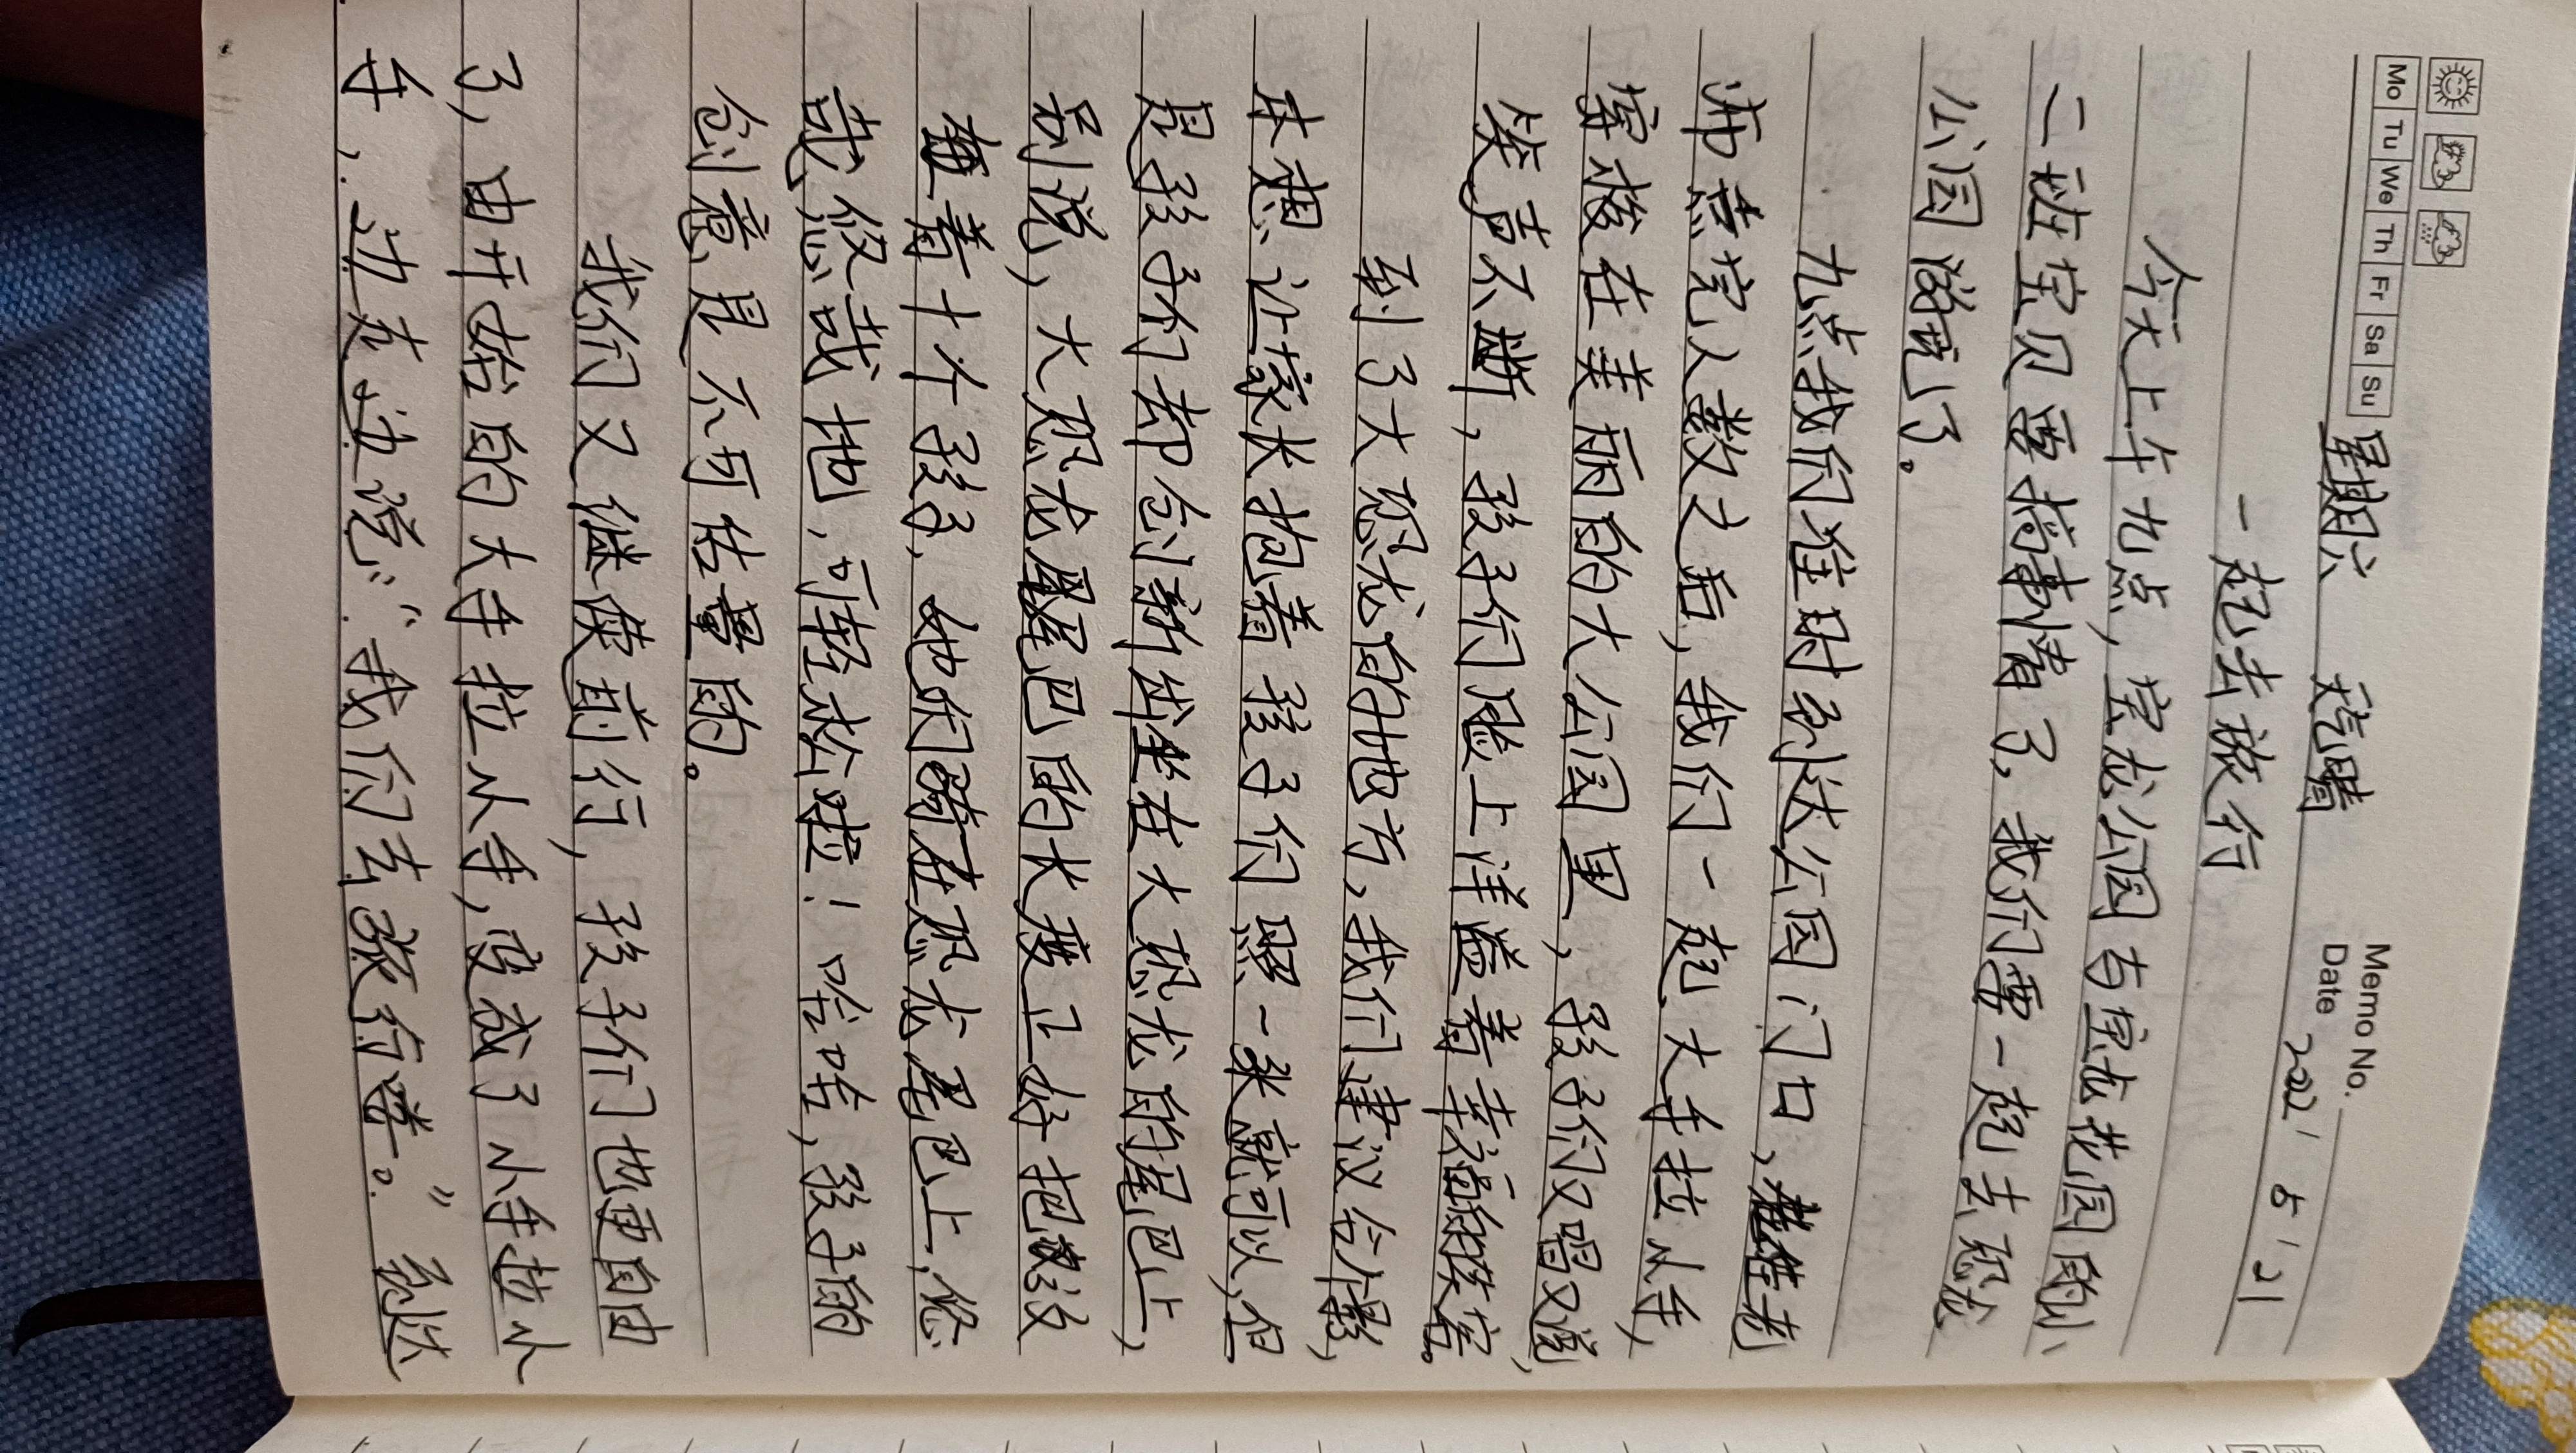 Memo No.
Mo Tu We Th Fr Sa Su
Date 2022 / 5 / 21
星期六 天气晴
一起去旅行
今天上午九点，宝龙公园与宝龙花园的小
二班宝贝要搞事情了，我们要一起去恐龙
公园做玩了。
九点我们准时到达公园门口，龙老
师点完人数之后，我们一起大手拉小手，
穿梭在美丽的大公园里，孩子们又唱又说，
笑声不断，孩子们脸上洋溢着幸福的笑容。
到了大恐龙的地方，我们建议合个影，
本想让家长抱着孩子们照一张就可以，但
是孩子们却创新出坐在大恐龙的尾巴上，
别说，大恐龙尾巴的长度正好把没
有着十个孩子，他们骑在恐龙尾巴上，悠
哉悠哉地，可轻松啦！哈哈，孩子的
创意是不可估量的。
我们又继续前行，孩子们也更自由
了，由开始的大手拉小手，变成了小手拉小
手，边走边说：“我们去旅行喽。”到达